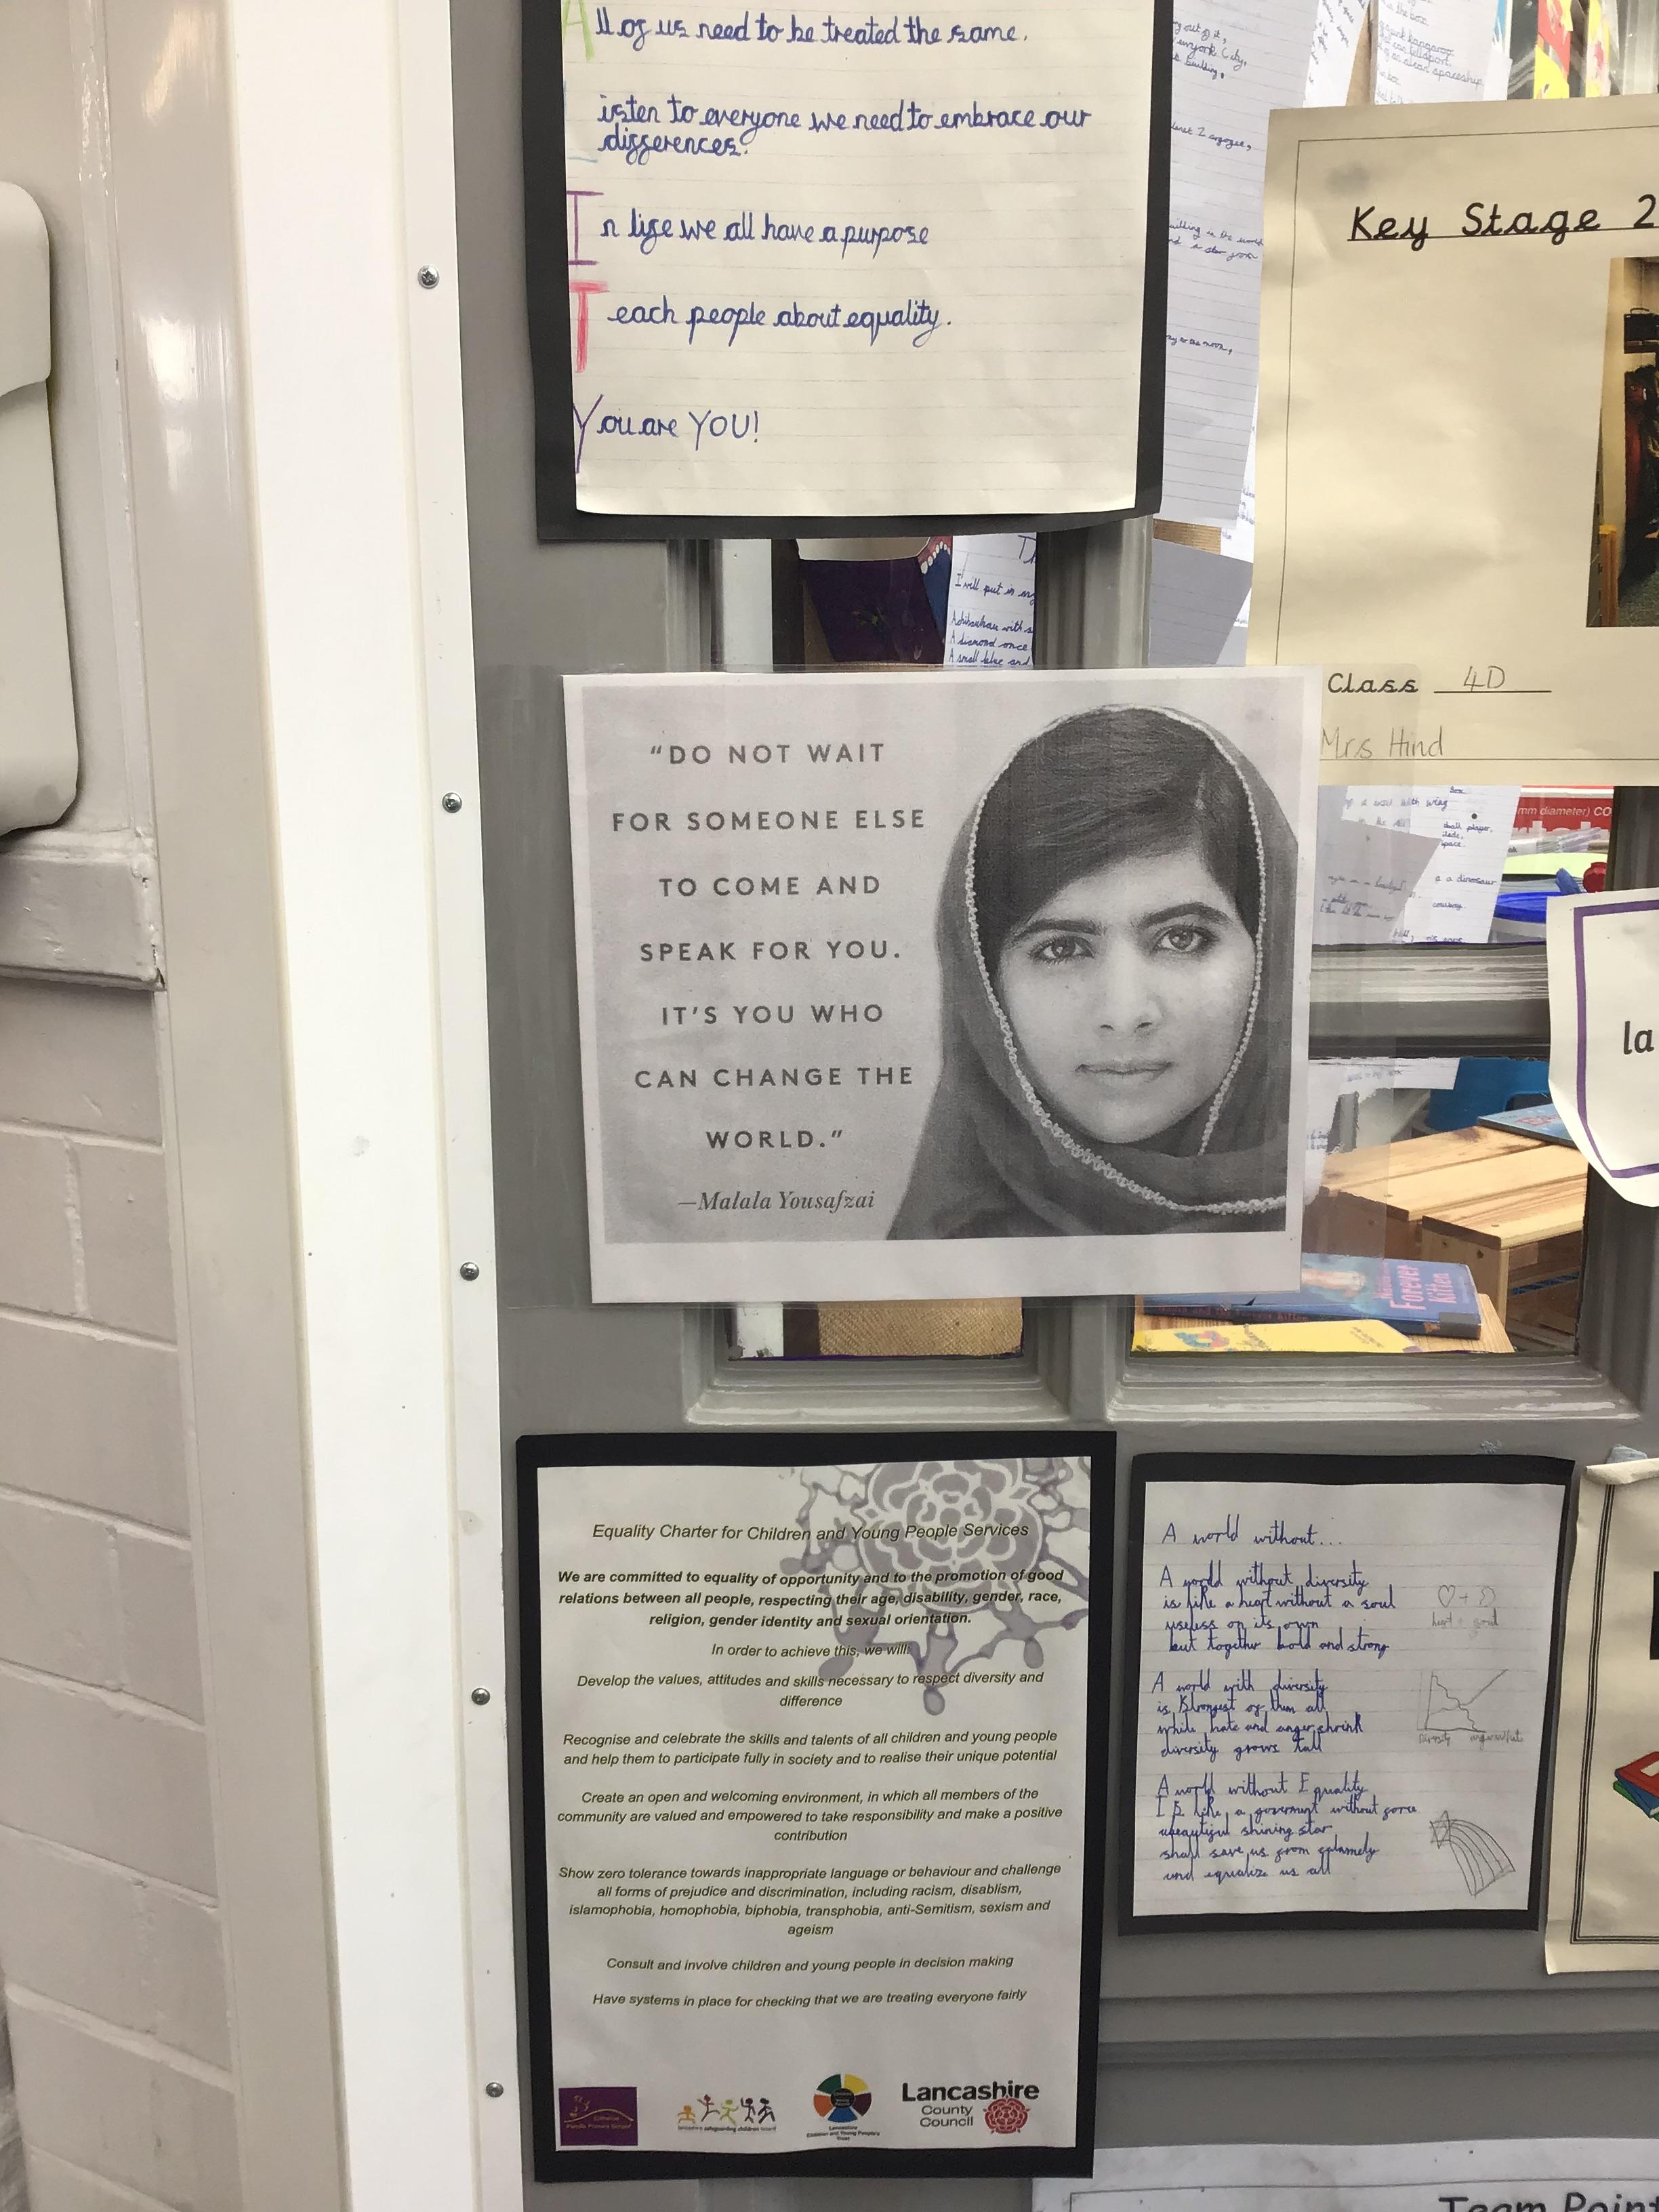 All of us need to be treated the same.
isten to everyone we need to embrace our
differences.
In life we all have a purpose
Teach people about equality.
You are YOU!
Key Stage 2
Class 4D
Mrs Hind
I will put in my
A diamond once
A small blue and
"DO NOT WAIT
FOR SOMEONE ELSE
TO COME AND
SPEAK FOR YOU.
IT'S YOU WHO
CAN CHANGE THE
WORLD."
—Malala Yousafzai
mm diameter) CO
a dinosaur
la
Forever
Kitten
Equality Charter for Children and Young People Services
We are committed to equality of opportunity and to the promotion of good
relations between all people, respecting their age, disability, gender, race,
religion, gender identity and sexual orientation.
In order to achieve this, we will:
Develop the values, attitudes and skills necessary to respect diversity and
difference
Recognise and celebrate the skills and talents of all children and young people
and help them to participate fully in society and to realise their unique potential
Create an open and welcoming environment, in which all members of the
community are valued and empowered to take responsibility and make a positive
contribution
Show zero tolerance towards inappropriate language or behaviour and challenge
all forms of prejudice and discrimination, including racism, disablism,
islamophobia, homophobia, biphobia, transphobia, anti-Semitism, sexism and
ageism
Consult and involve children and young people in decision making
Have systems in place for checking that we are treating everyone fairly
Lancashire
County
Council
A world without...
A world without diversity
is like a heart without a soul
useless on its own
but together bold and strong
heart + soul
A world with diversity
is Strongest of them all
while hate and anger shrink
diversity grows tall
A world without Equality
IS like a goverment without force
a beautiful shining star
shall save us from calamely
and equalize us all
Team Point